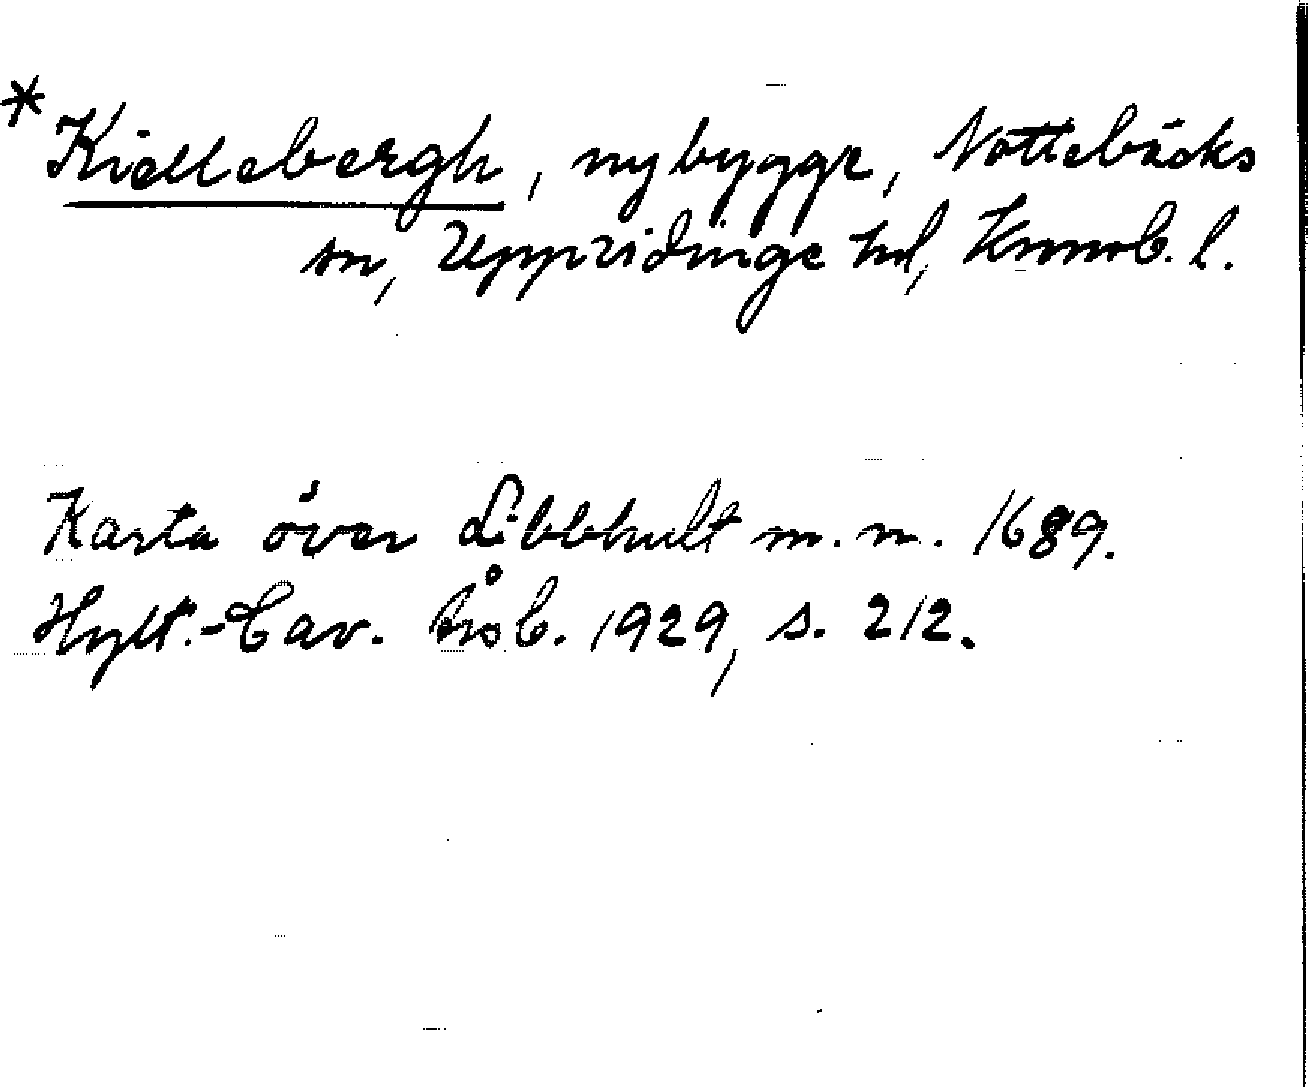 * Kiellebergh, nybygge, Nottebäcks
sn, Uppvidinge hd, Kronob. l.
Karta över Libbhult m.m. 1689.
Hylt.-Cav. årsb. 1929, s. 212.